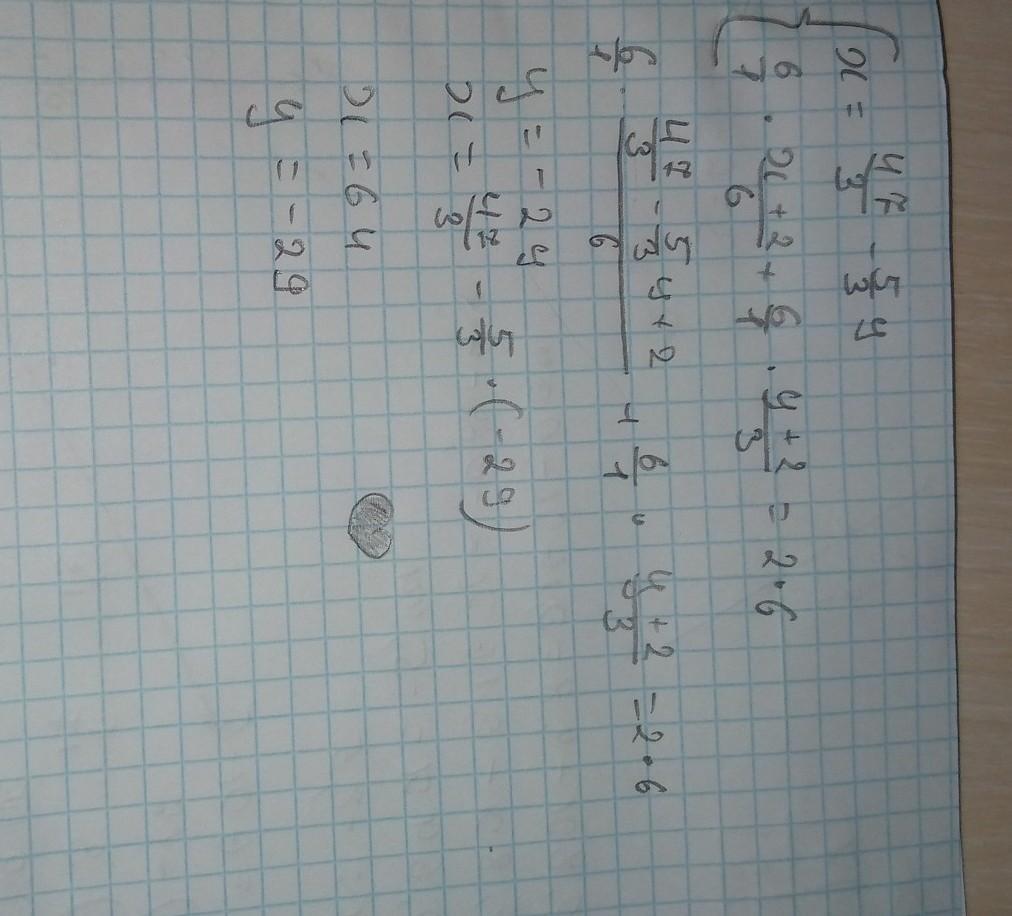 x = 47/3 - 5/3 y
6/1 · (x+2)/6 + 6/1 · (y+2)/3 = 2·6
6/1 · (47/3 - 5/3 y + 2)/6 + 6/1 · (y+2)/3 = 2·6
y = -29
x = 47/3 - 5/3 · (-29)
x = 64
y = -29